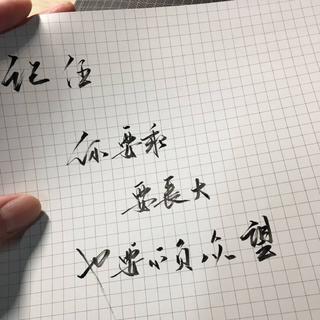 记住
你要乖
要長大
也要不负众望